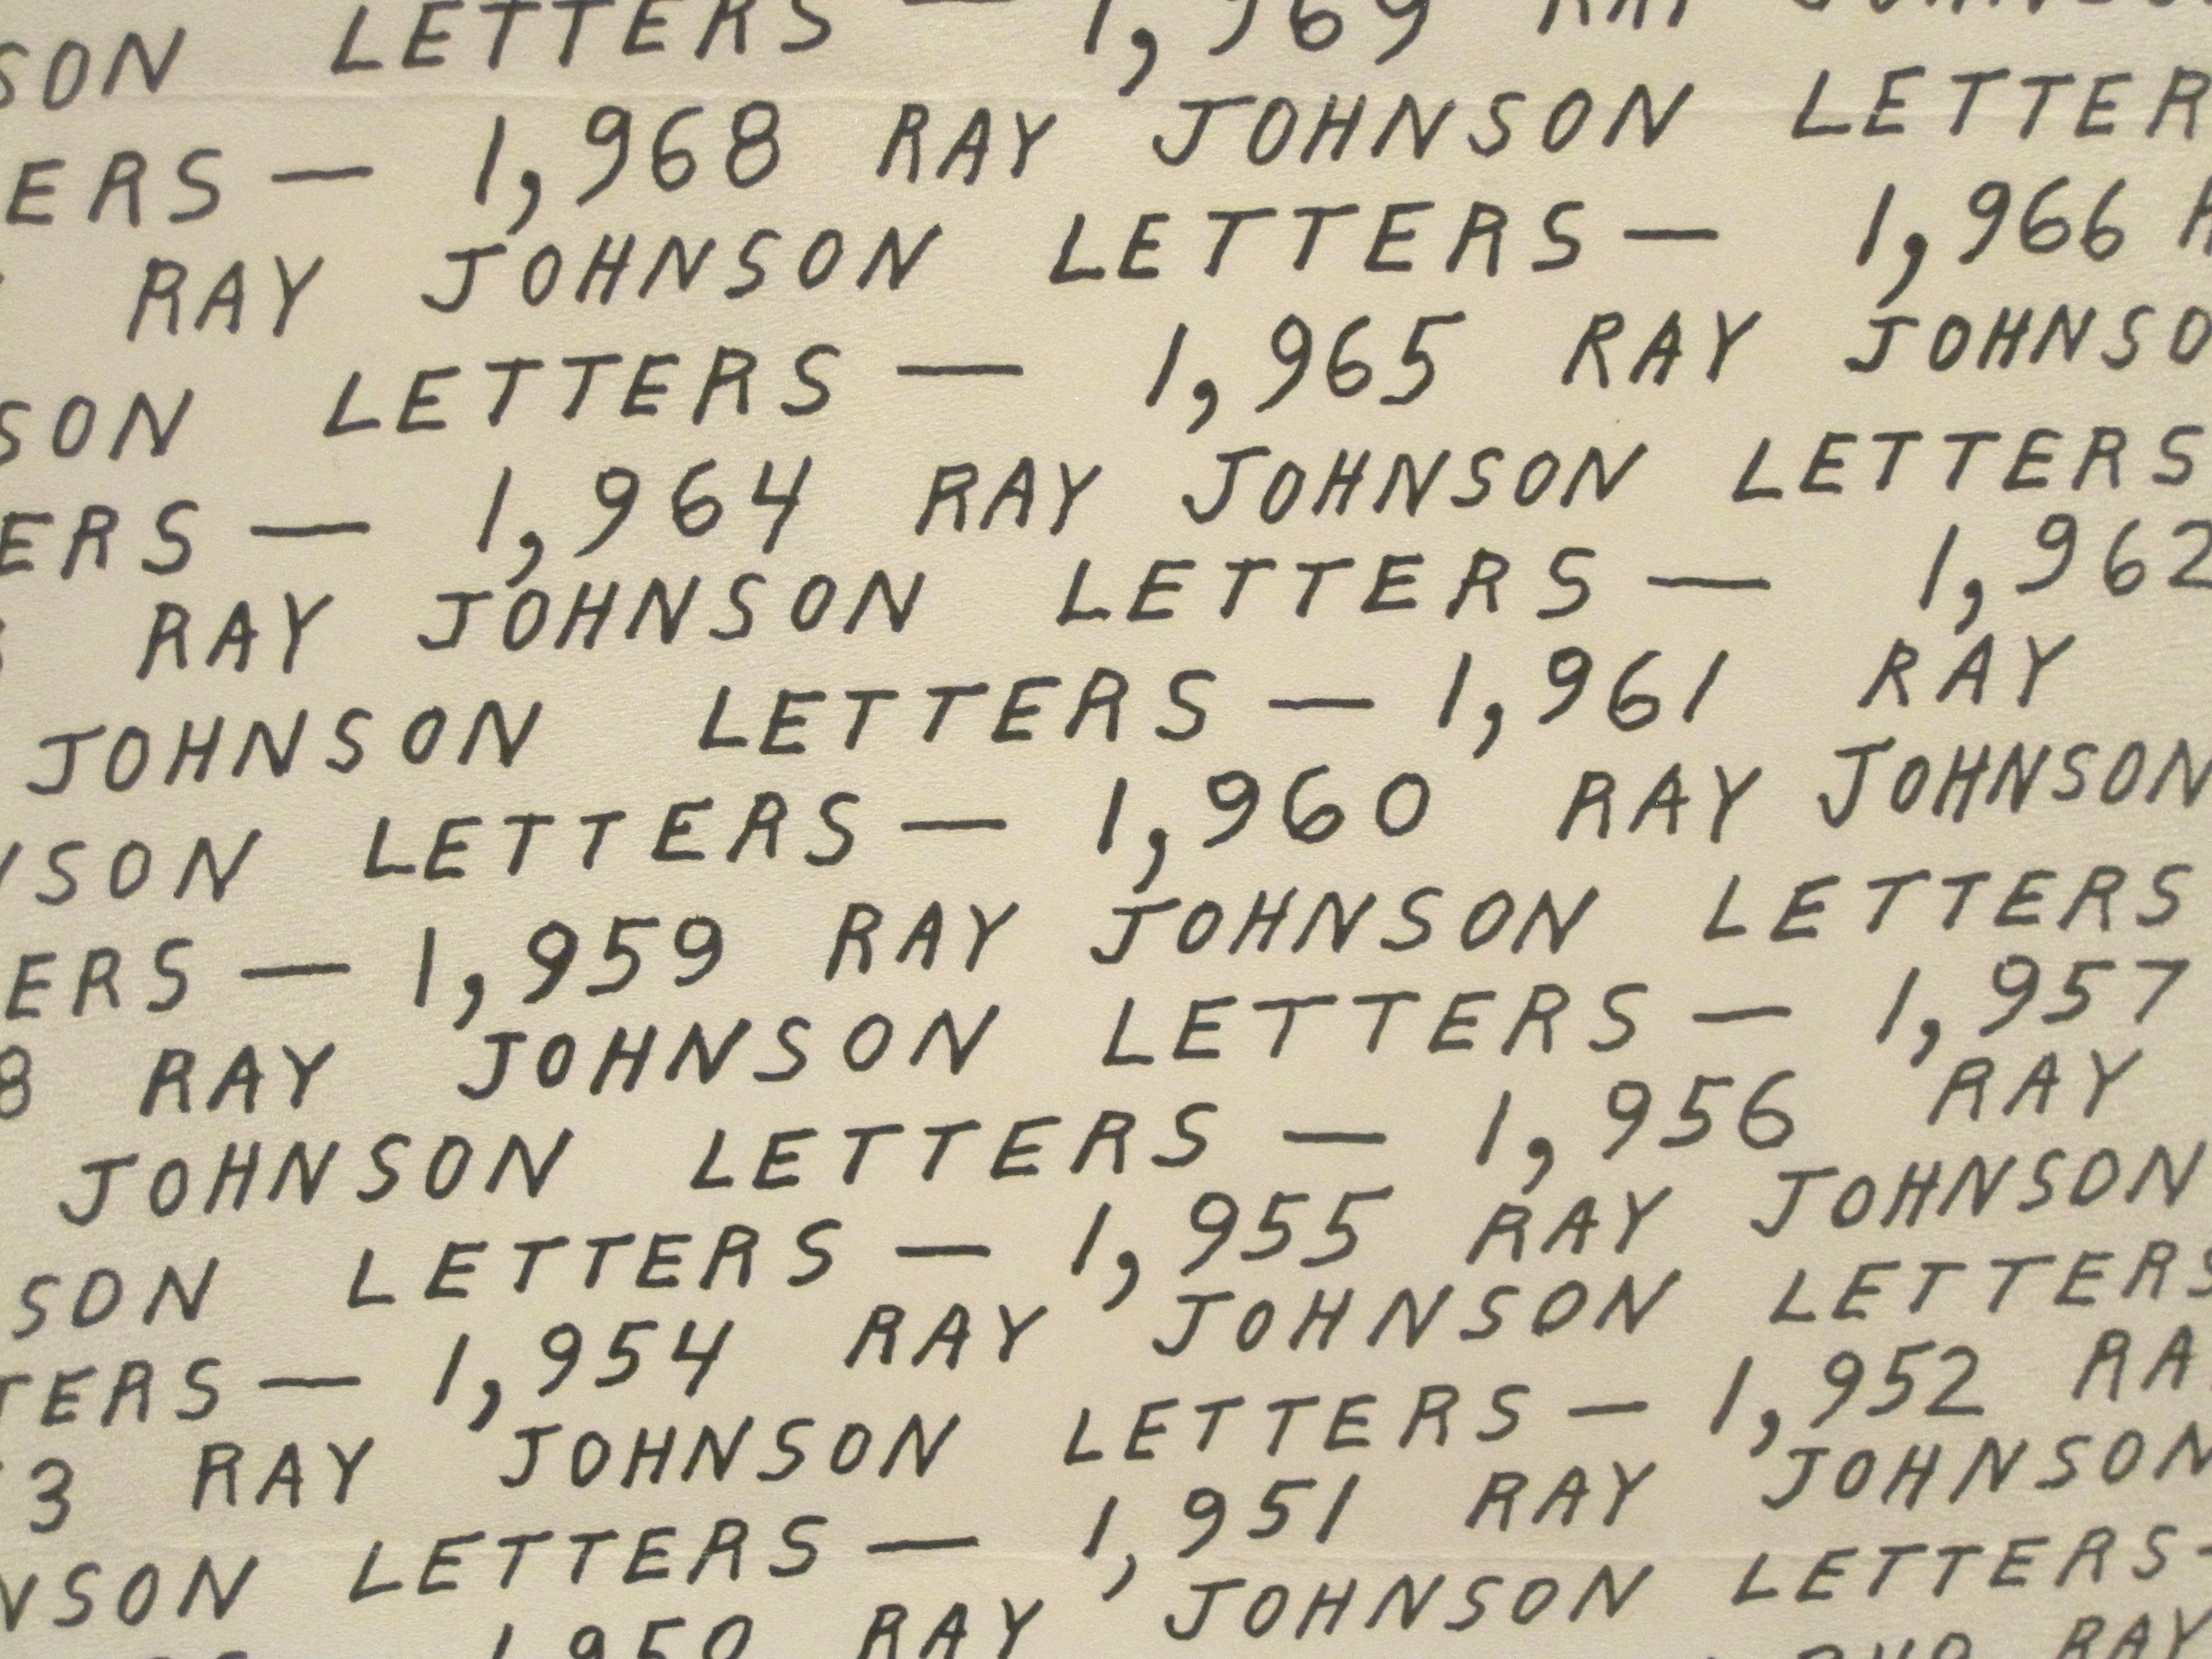 SON LETTERS — 1,969 RAY JOHNSON
ERS — 1,968 RAY JOHNSON LETTER
RAY JOHNSON LETTERS — 1,966
SON LETTERS — 1,965 RAY JOHNSO
ERS — 1,964 RAY JOHNSON LETTERS
RAY JOHNSON LETTERS — 1,962
JOHNSON LETTERS — 1,961 RAY
NSON LETTERS — 1,960 RAY JOHNSON
ERS — 1,959 RAY JOHNSON LETTERS
8 RAY JOHNSON LETTERS — 1,957
JOHNSON LETTERS — 1,956 RAY
SON LETTERS — 1,955 RAY JOHNSON
TERS — 1,954 RAY JOHNSON LETTERS
3 RAY JOHNSON LETTERS — 1,952 RA
NSON LETTERS — 1,951 RAY JOHNSON
1,950 RAY JOHNSON LETTERS —
RAY